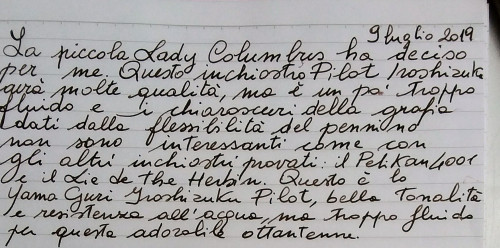 9 luglio 2019
La piccola Lady Columbus ha deciso
per me. Questo inchiostro Pilot Iroshizuku
avrà molte qualità, ma è un po' troppo
fluido e i chiaroscuri della grafia
dati dalla flessibilità del pennino
non sono interessanti come con
gli altri inchiostri provati: il Pelikan 4001
e il Lie de Thé Herbin. Questo è lo
Yama Guri Iroshizuku Pilot, bella tonalità
e resistenza all'acqua, ma troppo fluido
per questa adorabile ottantenne.